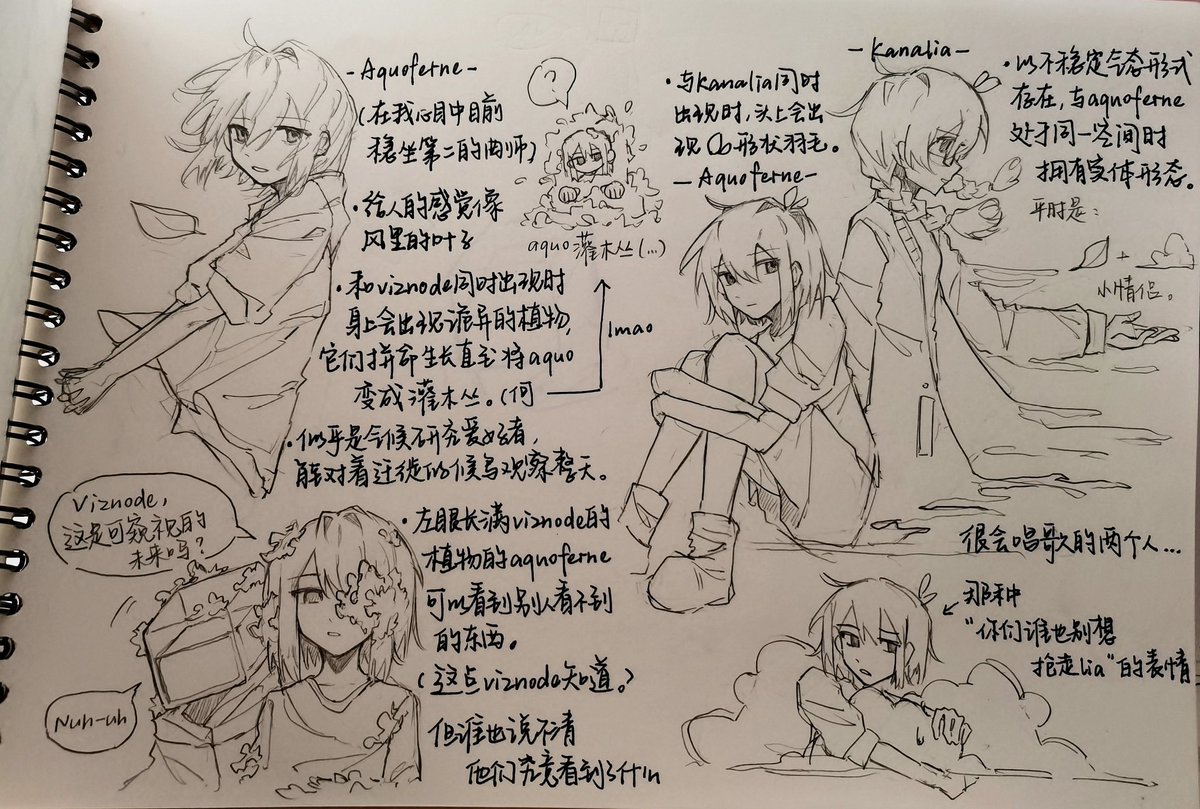 -Aquoferne-
(在我心目中目前
稳坐第二的画师)
·给人的感觉像
风里的叶子
?
aquo灌木丛(...)
·和viznode同时出现时
身上会出现诡异的植物,
它们拼命生长直至将aquo
变成灌木丛。(何
lmao
·似乎是气候研究爱好者,
能对着迁徙的候鸟观察整天。
Viznode,
这是可窥视的
未来吗?
Nuh-uh
·左眼长满viznode的
植物的aquoferne
可以看到别人看不到
的东西。
(这点viznode知道。)
但谁也说不清
他们究竟看到了什
·与Kanalia同时
出现时,头上会出
现形状羽毛。
-Aquoferne-
-Kanalia-
·以不稳定气态形式
存在,与aquoferne
处于同一空间时
拥有实体形态。
平时是:
+
小情侣。
很会唱歌的两个人...
那种
"你们谁也别想
抢走lia"的表情